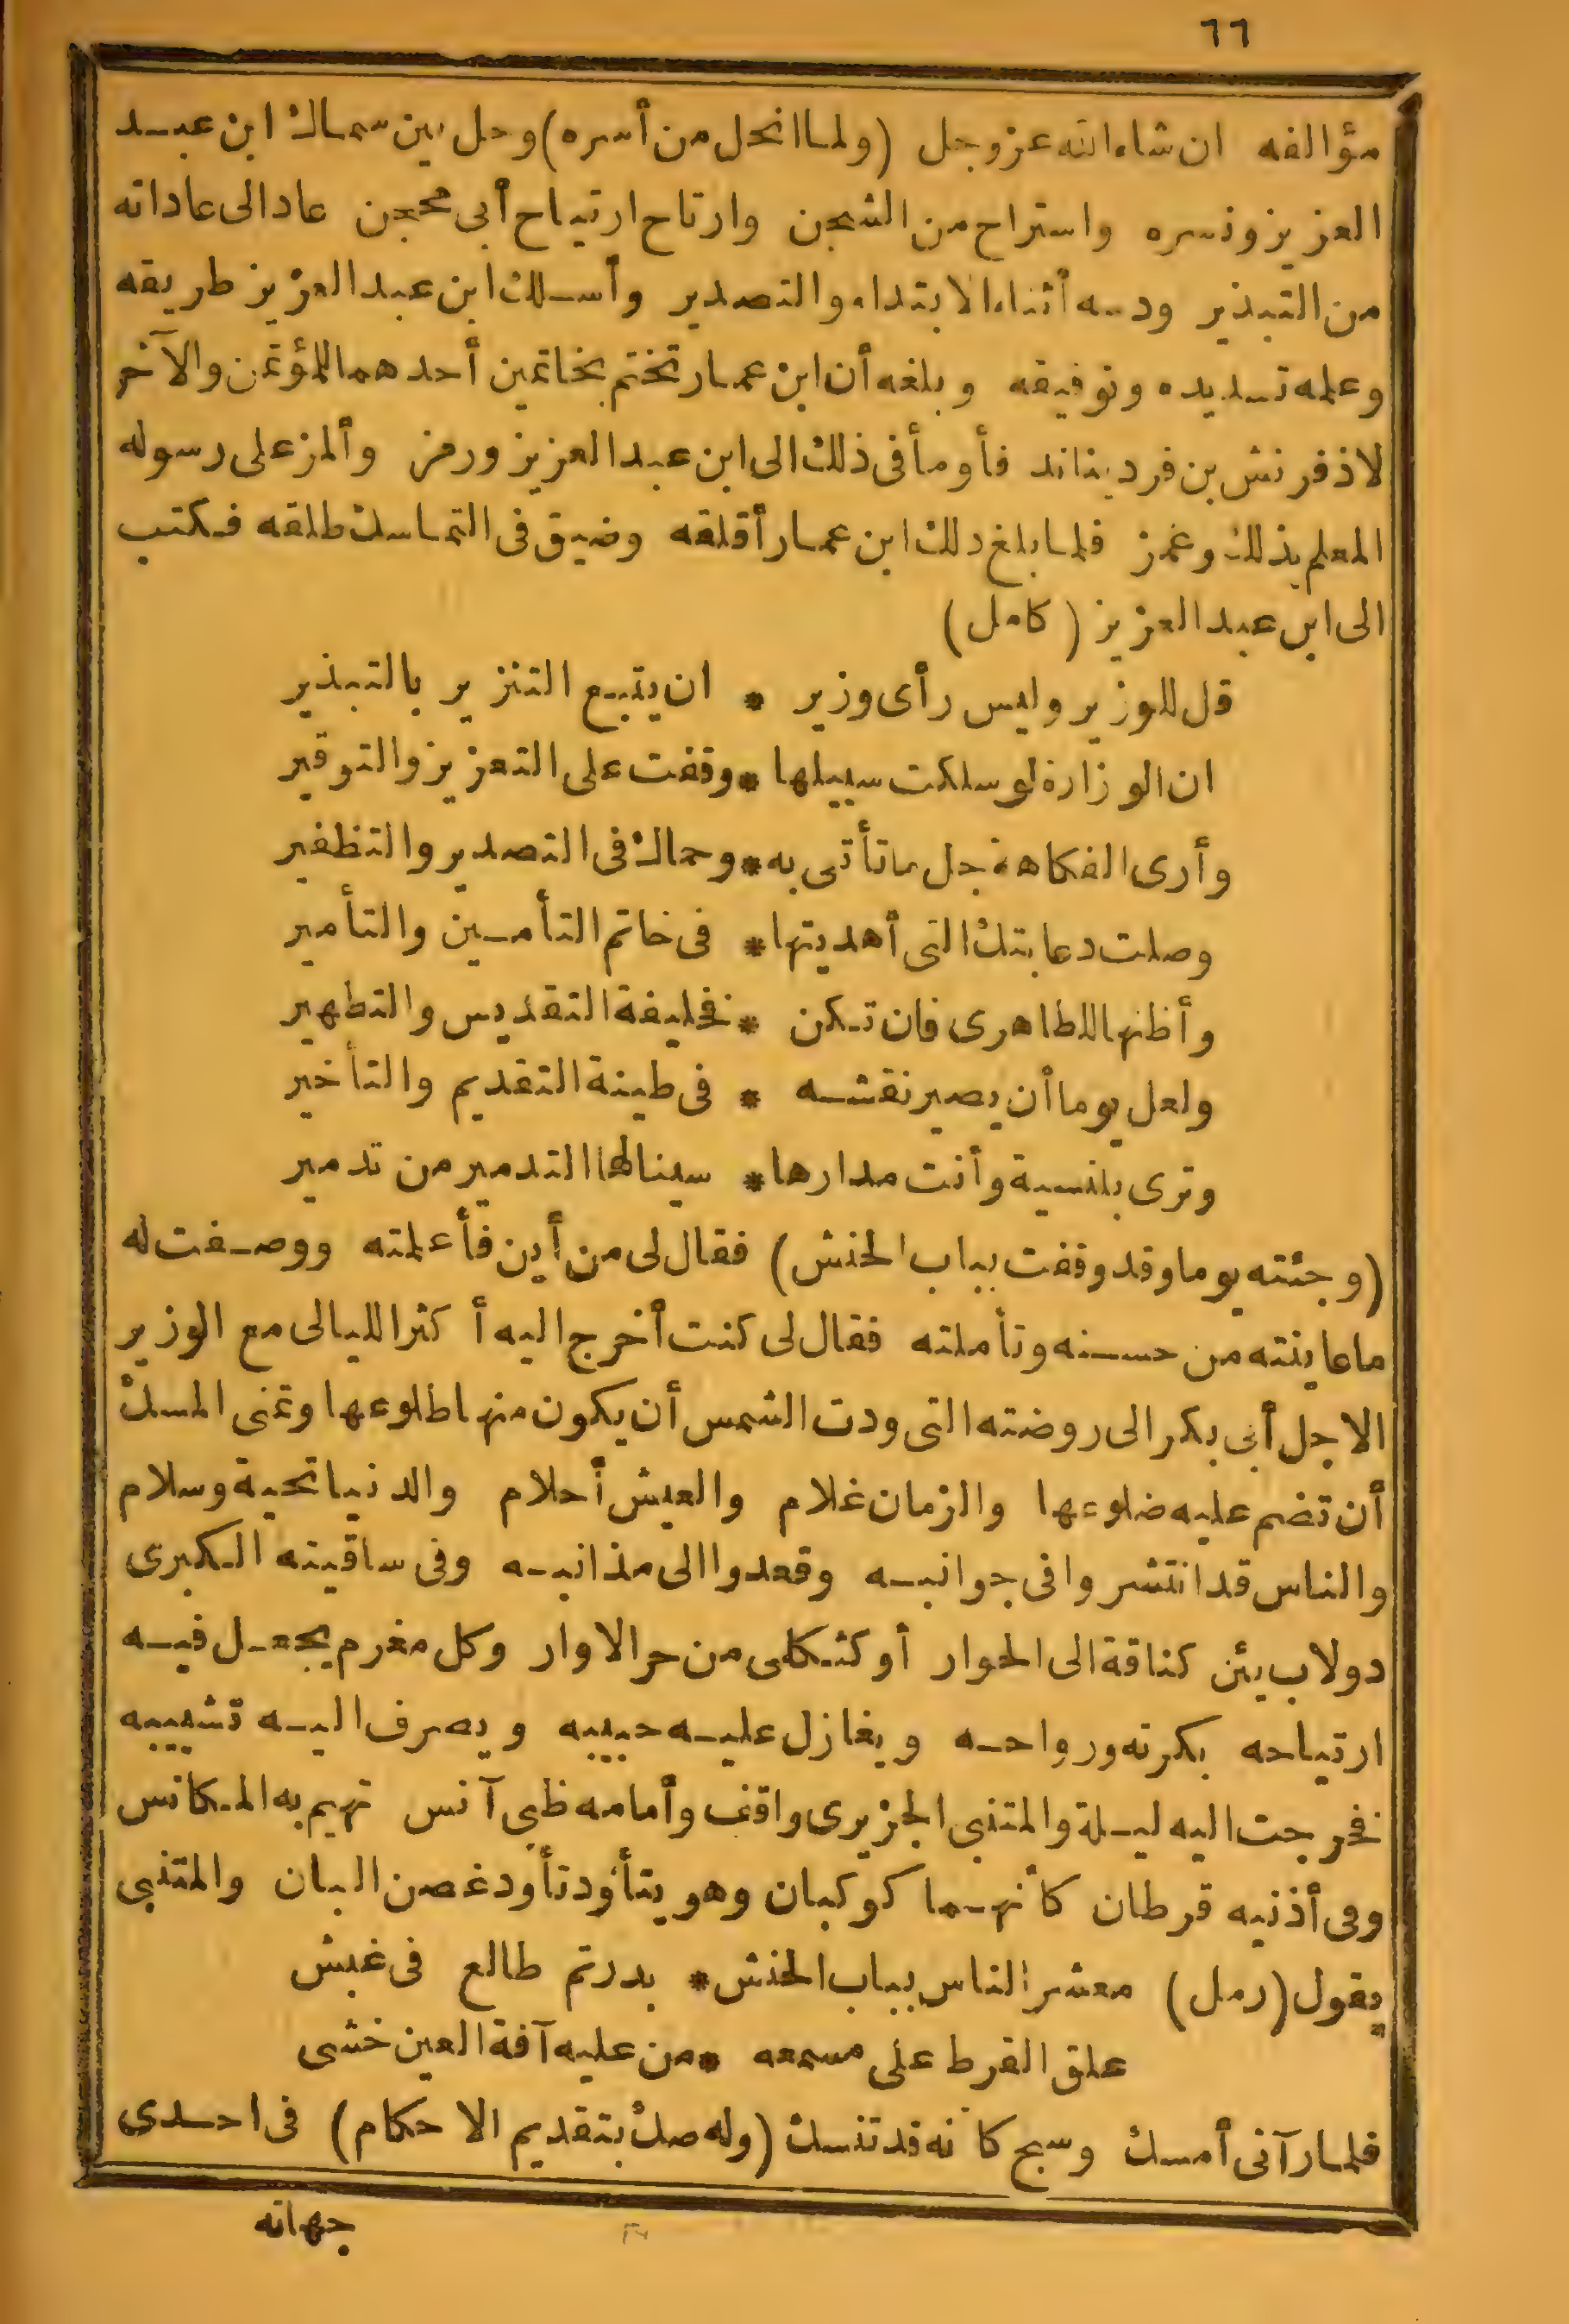 ٦٦
مؤالفه ان شاء الله عز وجل (ولما انحل من أسره) وحل بين سماك ابن عبد
العزيز ونسره واستراح من الشجن وارتاح ارتياح أبى محجن عاد الى عاداته
من التبذير ودسه أثناء الابتداء والتصدير وأسلك ابن عبد العزيز طريقه
وعلمه تسديده وتوفيقه وبلغه أن ابن عمار تختم بخاتمين أحدهما للمؤتمن والآخر
لاذفرنش بن فرديناند فأومأ فى ذلك الى ابن عبد العزيز ورمز وألمز على رسوله
المعلم بذلك وغمز فلما بلغ ذلك ابن عمار أقلقه وضيق فى التماسك طلقه فكتب
الى ابن عبد العزيز (كامل)
قل للوزير وليس رأى وزير * ان يتبع التنزير بالتبذير
ان الوزارة لو سلكت سبيلها * وقفت على التعزيز والتوقير
وأرى الفكاهة جل ما تأتى به * وحماك فى التصدير والتظفير
وصلت دعابتك التى أهديتها * فى خاتم التأمين والتأمير
وأظنها للطاهرى فان تكن * فخليفة التقديس والتطهير
ولعل يوما أن يصير نقشه * فى طينة التقديم والتأخير
وترى بلنسية وأنت مدارها * سينالها التدمير من تدمير
(وجئته يوما وقد وقفت بباب الحنش) فقال لى من أين فأعلمته ووصفت له
ما عاينته من حسنه وتأملته فقال لى كنت أخرج اليه أكثر الليالى مع الوزير
الاجل أبى بكر الى روضته التى ودت الشمس أن يكون منها طلوعها وتمنى المسك
أن تضم عليه ضلوعها والزمان غلام والعيش أحلام والدنيا تحية وسلام
والناس قد انتشروا فى جوانبه وقعدوا الى مذانبه وفى ساقيته الكبرى
دولاب يئن كناقة الى الحوار أو كثكلى من حر الاوار وكل مغرم يجعل فيه
ارتياحه بكرته ورواحه ويغازل عليه حبيبه ويصرف اليه تشبيبه
فخرجت اليه ليلة والمتنبى الجزيرى واقف وأمامه ظبى آنس تهيم به المكانس
وفى أذنيه قرطان كأنهما كوكبان وهو يتأود تأود غصن البان والمتنبى
يقول (رمل) معشر الناس بباب الحنش * بدر تم طالع فى غبش
علق القرط على مسمعه * من عليه آفة العين خشى
فلما رآنى أمسك وسبح كأنه قد تنسك (وله صك بتقديم الاحكام) فى احدى
جهاته